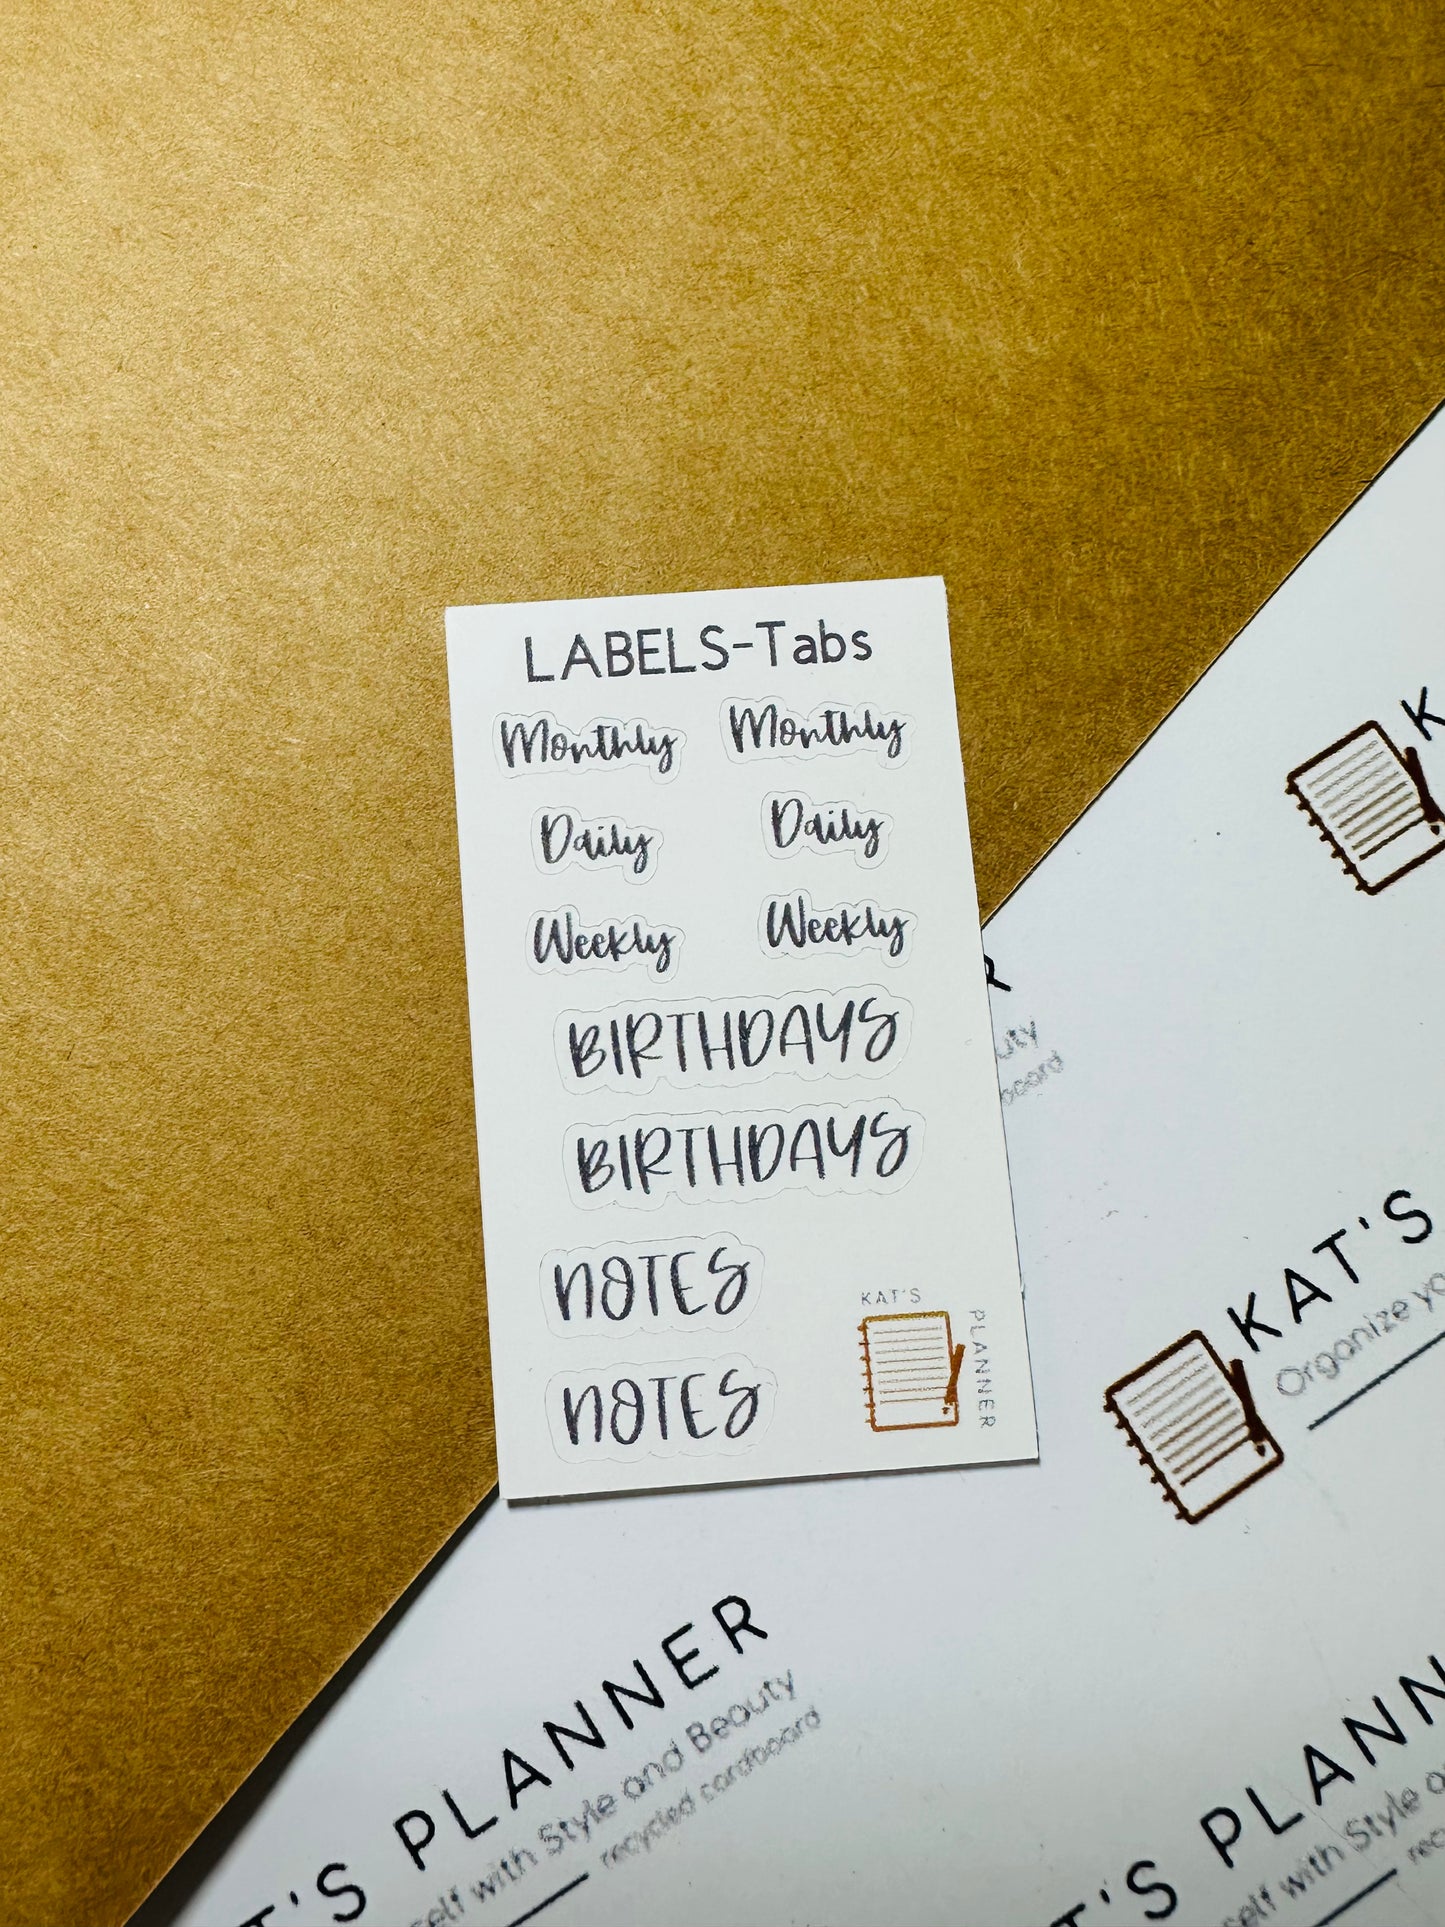 LABELS-Tabs
Monthly Monthly
Daily Daily
Weekly Weekly
BIRTHDAYS
BIRTHDAYS
NOTES
NOTES
KAT'S
PLANNER
K
R
uty
board
KAT'S
Organize yo
'S PLANNER
self with Style and Beauty
recycled cardboard
'S PLANN
self with Style